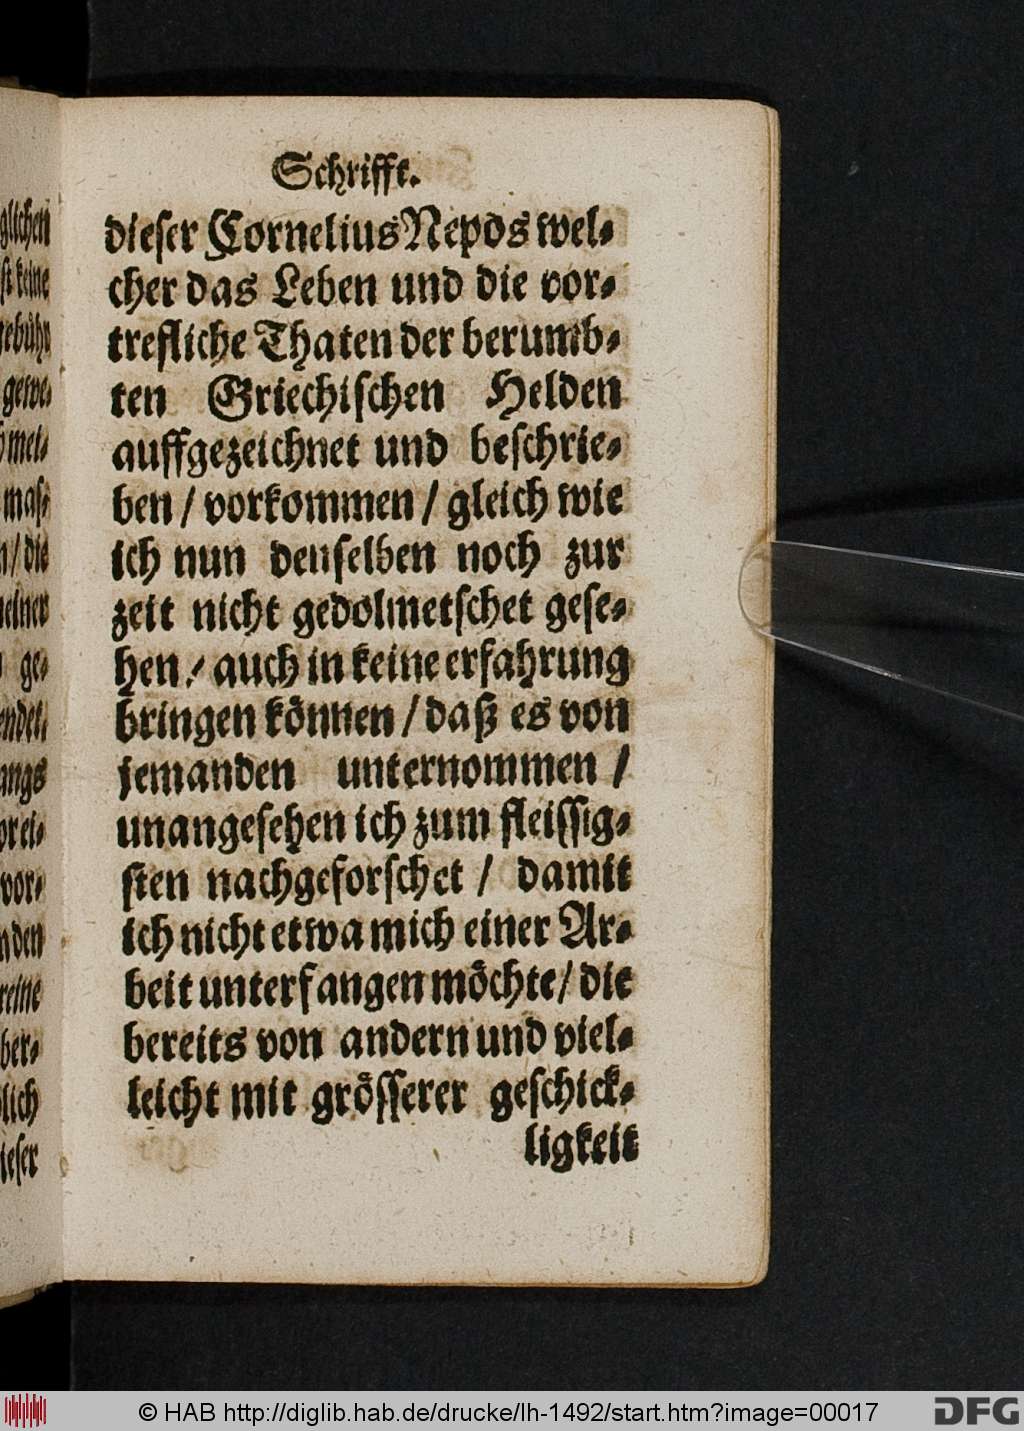 Schrifft.
dieser Cornelius Nepos wel-
cher das Leben und die vor-
trefliche Thaten der berumb-
ten Griechischen Helden
auffgezeichnet und beschrie-
ben / vorkommen / gleich wie
ich nun denselben noch zur
zeit nicht gedolmetschet gese-
hen / auch in keine erfahrung
bringen können / daß es von
jemanden unternommen /
unangesehen ich zum fleissig-
sten nachgeforschet / damit
ich nicht etwa mich einer Ar-
beit unterfangen möchte / die
bereits von andern und viel-
leicht mit grösserer geschick-
ligkeit
© HAB http://diglib.hab.de/drucke/lh-1492/start.htm?image=00017
DFG